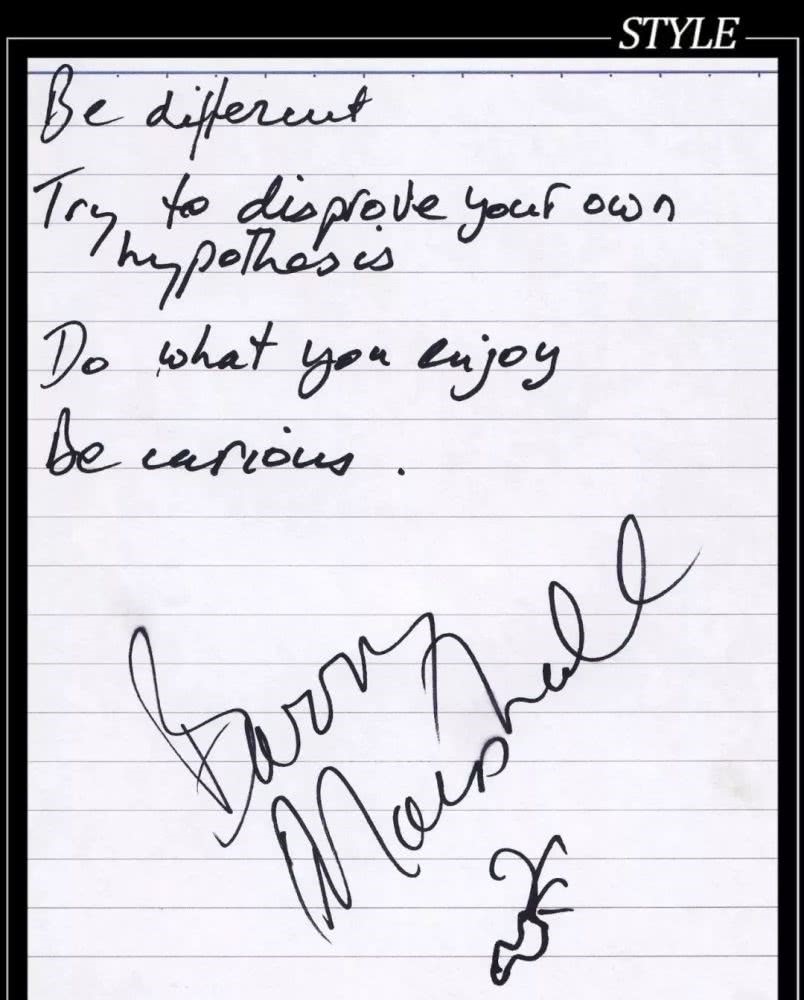 STYLE
Be different
Try to disprove your own
hypothesis
Do what you enjoy
Be curious.
Barry
Marshall